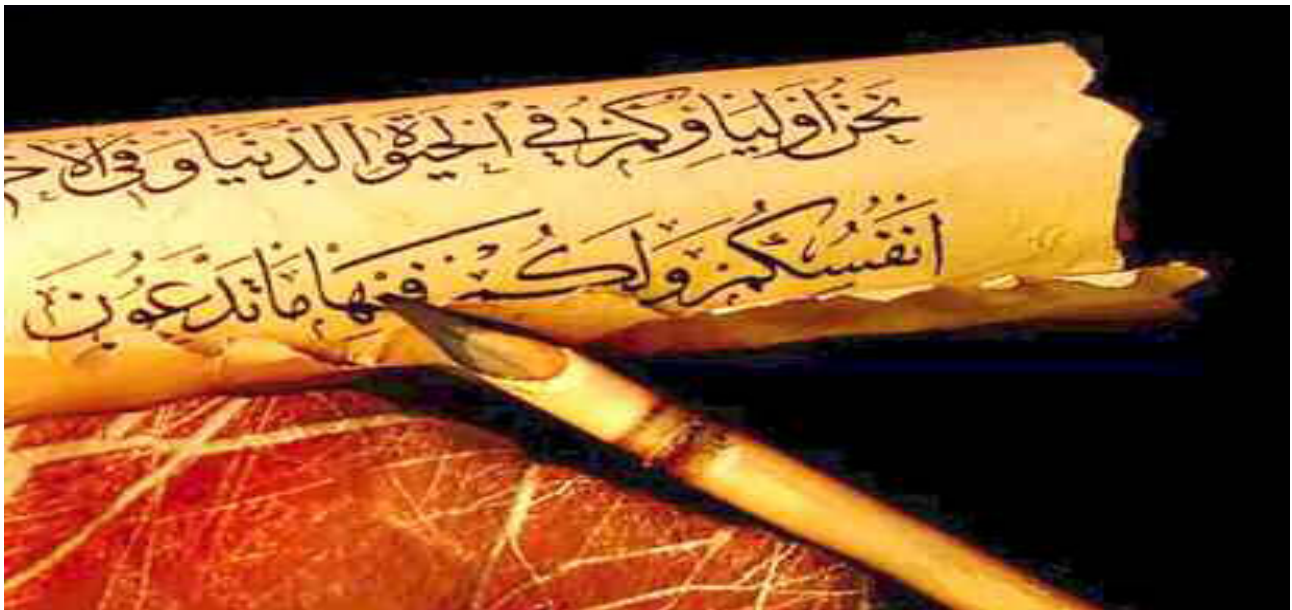 نحن اولياوكم في الحيوة الدنيا وفي الاخ
انفسكم ولكم فيها ما تدعون